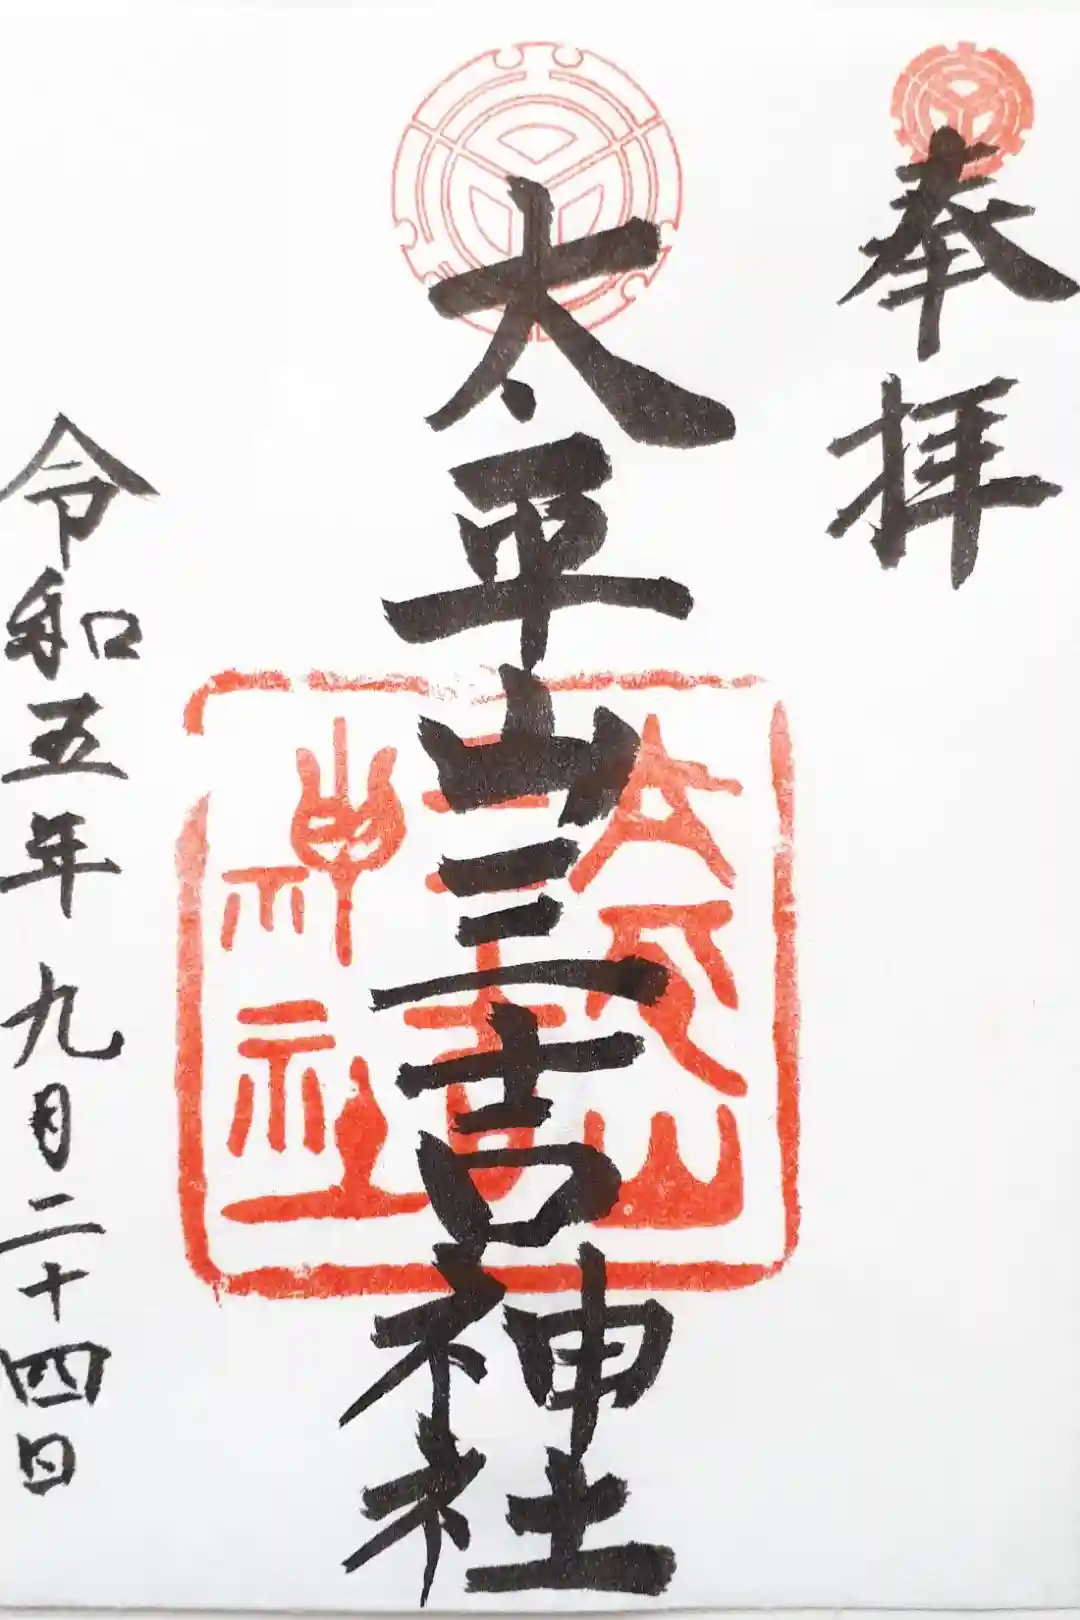 奉拝
太平山三吉神社
太平山
三吉
神社
令和五年九月二十四日